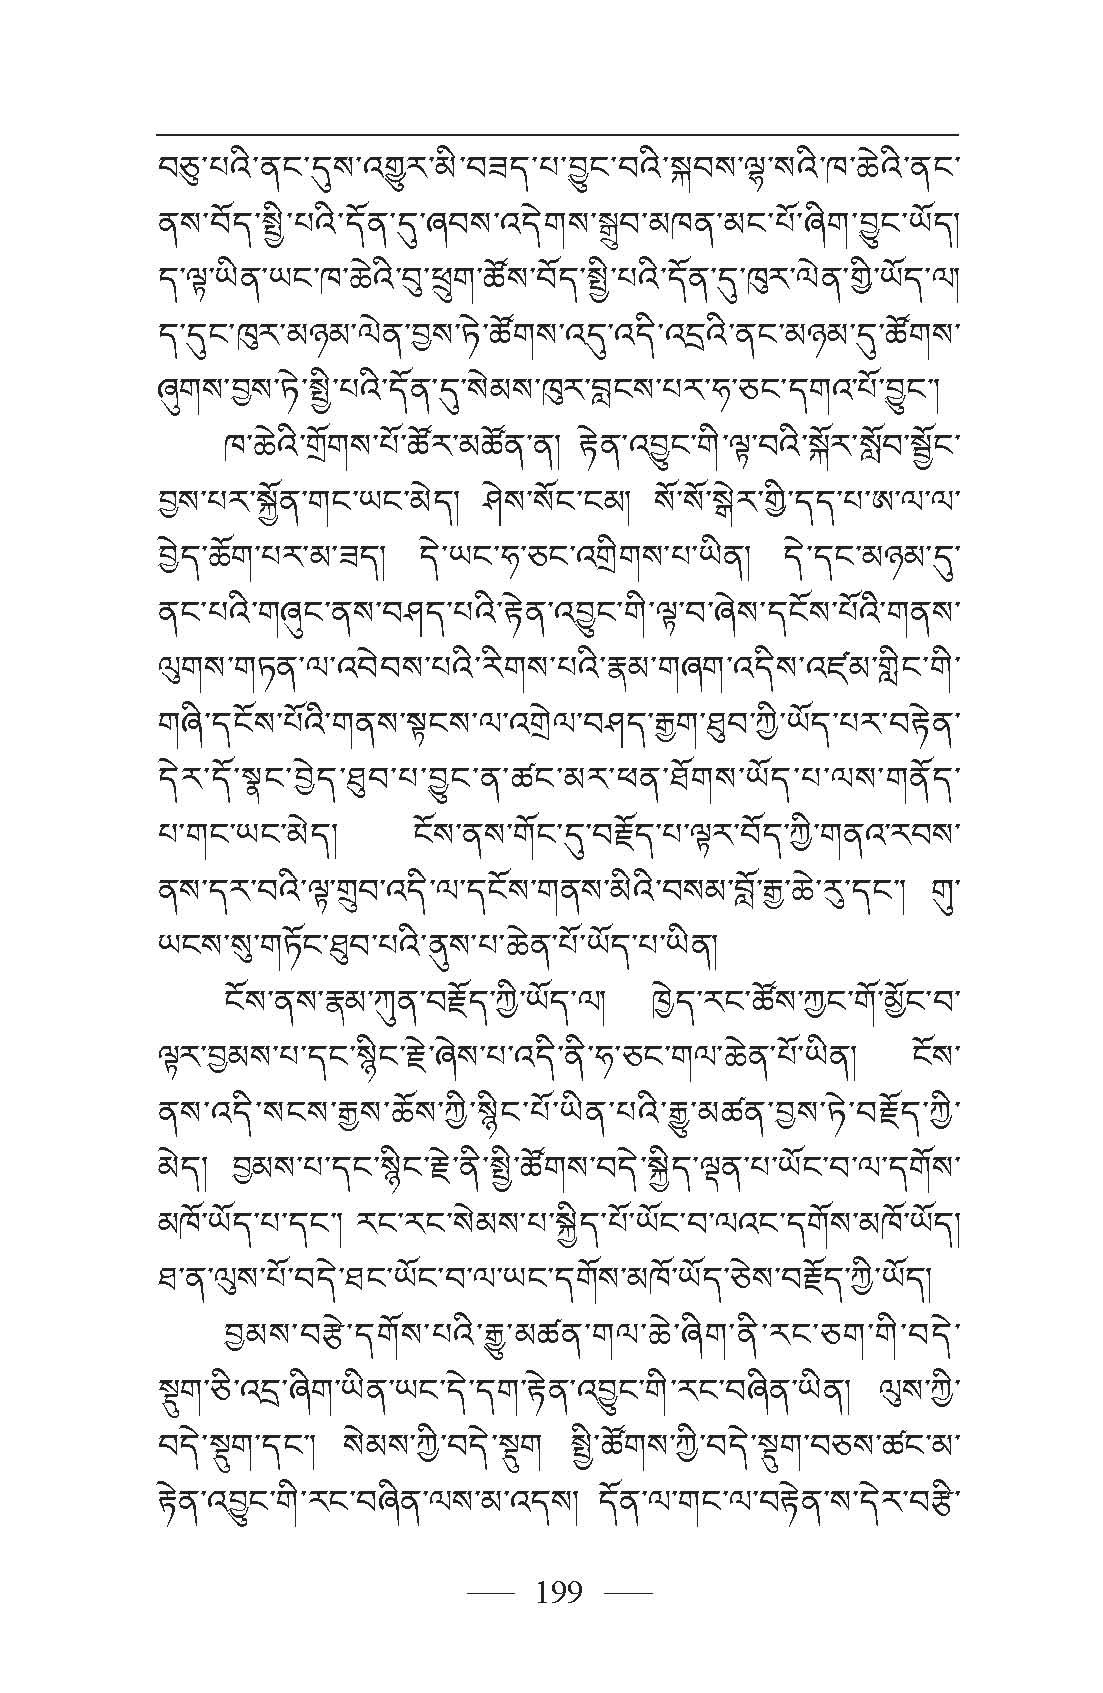 བཅུ་པའི་ནང་དུས་འགྱུར་མི་བཟད་པ་བྱུང་བའི་སྐབས་ལྷ་སའི་ཁ་ཆེའི་ནང་
ནས་བོད་སྤྱི་པའི་དོན་དུ་ཞབས་འདེགས་སྒྲུབ་མཁན་མང་པོ་ཞིག་བྱུང་ཡོད།
ད་ལྟ་ཡིན་ཡང་ཁ་ཆེའི་བུ་ཕྲུག་ཚོས་བོད་སྤྱི་པའི་དོན་དུ་ཁུར་ལེན་གྱི་ཡོད་ལ།
ད་དུང་ཁུར་མཉམ་ལེན་བྱས་ཏེ་ཚོགས་འདུ་འདི་འདྲའི་ནང་མཉམ་དུ་ཚོགས་
ཞུགས་བྱས་ཏེ་སྤྱི་པའི་དོན་དུ་སེམས་ཁུར་བླངས་པར་ཧ་ཅང་དགའ་པོ་བྱུང་།
ཁ་ཆེའི་གྲོགས་པོ་ཚོར་མཚོན་ན། རྟེན་འབྱུང་གི་ལྟ་བའི་སྐོར་སློབ་སྦྱོང་
བྱས་པར་སྐྱོན་གང་ཡང་མེད། ཤེས་སོང་ངམ། སོ་སོ་སྒེར་གྱི་དད་པ་ཨ་ལ་ལ་
བྱེད་ཆོག་པར་མ་ཟད། དེ་ཡང་ཧ་ཅང་འགྲིགས་པ་ཡིན། དེ་དང་མཉམ་དུ་
ནང་པའི་གཞུང་ནས་བཤད་པའི་རྟེན་འབྱུང་གི་ལྟ་བ་ཞེས་དངོས་པོའི་གནས་
ལུགས་གཏན་ལ་འབེབས་པའི་རིགས་པའི་རྣམ་གཞག་འདིས་འཛམ་གླིང་གི་
གཞི་དངོས་པོའི་གནས་སྟངས་ལ་འགྲེལ་བཤད་རྒྱག་ཐུབ་ཀྱི་ཡོད་པར་བརྟེན་
དེར་དོ་སྣང་བྱེད་ཐུབ་པ་བྱུང་ན་ཚང་མར་ཕན་ཐོགས་ཡོད་པ་ལས་གནོད་
པ་གང་ཡང་མེད། ངོས་ནས་གོང་དུ་བརྗོད་པ་ལྟར་བོད་ཀྱི་གནའ་རབས་
ནས་དར་བའི་ལྟ་གྲུབ་འདི་ལ་དངོས་གནས་མིའི་བསམ་བློ་རྒྱ་ཆེ་རུ་དང་། གུ་
ཡངས་སུ་གཏོང་ཐུབ་པའི་ནུས་པ་ཆེན་པོ་ཡོད་པ་ཡིན།
ངོས་ནས་རྣམ་ཀུན་བརྗོད་ཀྱི་ཡོད་ལ། ཁྱེད་རང་ཚོས་ཀྱང་གོ་མྱོང་བ་
ལྟར་བྱམས་པ་དང་སྙིང་རྗེ་ཞེས་པ་འདི་ནི་ཧ་ཅང་གལ་ཆེན་པོ་ཡིན། ངོས་
ནས་འདི་སངས་རྒྱས་ཆོས་ཀྱི་སྙིང་པོ་ཡིན་པའི་རྒྱུ་མཚན་བྱས་ཏེ་བརྗོད་ཀྱི་
མེད། བྱམས་པ་དང་སྙིང་རྗེ་ནི་སྤྱི་ཚོགས་བདེ་སྐྱིད་ལྡན་པ་ཡོང་བ་ལ་དགོས་
མཁོ་ཡོད་པ་དང་། རང་རང་སེམས་པ་སྐྱིད་པོ་ཡོང་བ་ལའང་དགོས་མཁོ་ཡོད།
ཐ་ན་ལུས་པོ་བདེ་ཐང་ཡོང་བ་ལ་ཡང་དགོས་མཁོ་ཡོད་ཅེས་བརྗོད་ཀྱི་ཡོད།
བྱམས་བརྩེ་དགོས་པའི་རྒྱུ་མཚན་གལ་ཆེ་ཞིག་ནི་རང་ཅག་གི་བདེ་
སྡུག་ཅི་འདྲ་ཞིག་ཡིན་ཡང་དེ་དག་རྟེན་འབྱུང་གི་རང་བཞིན་ཡིན། ལུས་ཀྱི་
བདེ་སྡུག་དང་། སེམས་ཀྱི་བདེ་སྡུག སྤྱི་ཚོགས་ཀྱི་བདེ་སྡུག་བཅས་ཚང་མ་
རྟེན་འབྱུང་གི་རང་བཞིན་ལས་མ་འདས། དོན་ལ་གང་ལ་བརྟེན་ས་དེར་བརྩི་
199